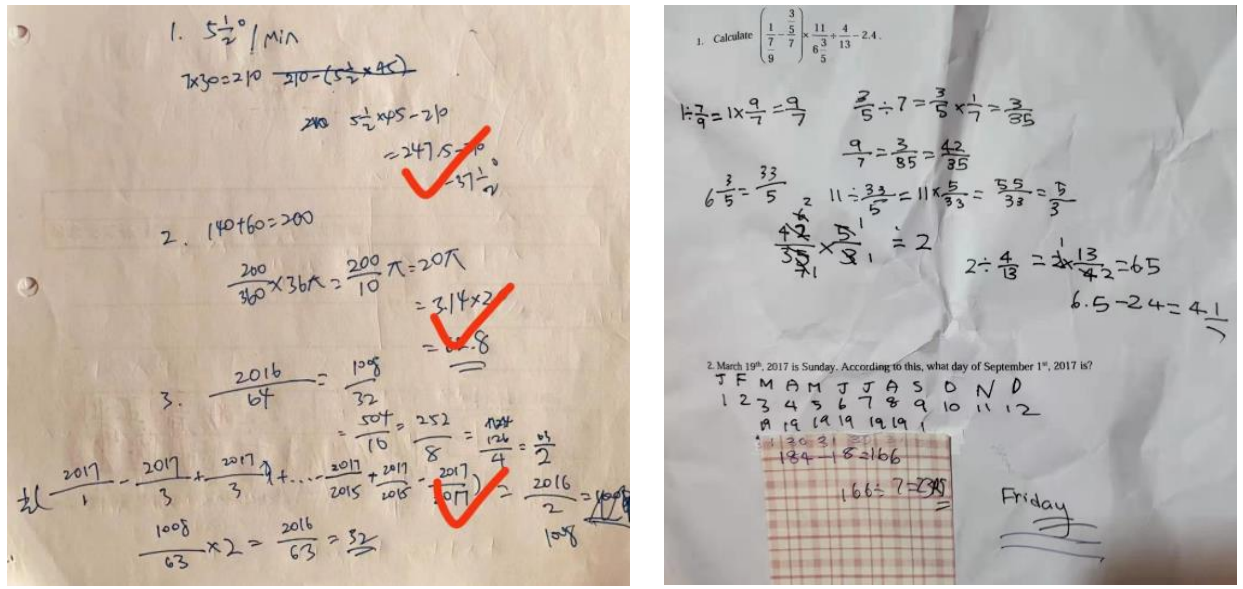 1. 5½° / Min
7×30=210 210-(5½×45)
5½×45-210
=247.5-210
=37½°
2. 140+60=200
200/360 ×36π = 200/10 π=20π
= 3.14×2
= 62.8
3. 2016/64 = 1008/32
= 504/16 = 252/8 = 126/4 = 63/2
½( 2017/1 - 2017/3 + 2017/3 +... - 2017/2015 + 2017/2015 - 2017/2017 ) = 2016/2 =
1008
1008/63 ×2 = 2016/63 = 32
1. Calculate (1/(7/9) - (3/5)/7) × 11/(6 3/5) ÷ 4/13 - 2.4.
1÷7/9 = 1×9/7 = 9/7 3/5 ÷7 = 3/5 × 1/7 = 3/35
9/7 = 3/85 = 42/35
6 3/5 = 33/5 11÷33/5 = 11×5/33 = 55/33 = 5/3
42/35 × 5/3 = 2
2÷4/13 = 2×13/4 2 =65
6.5-24=4 1/
2. March 19th, 2017 is Sunday. According to this, what day of September 1st, 2017 is?
J F M A M J J A S O N D
1 2 3 4 5 6 7 8 9 10 11 12
19 19 19 19 19 19 1
184-18=166
166÷7=
Friday